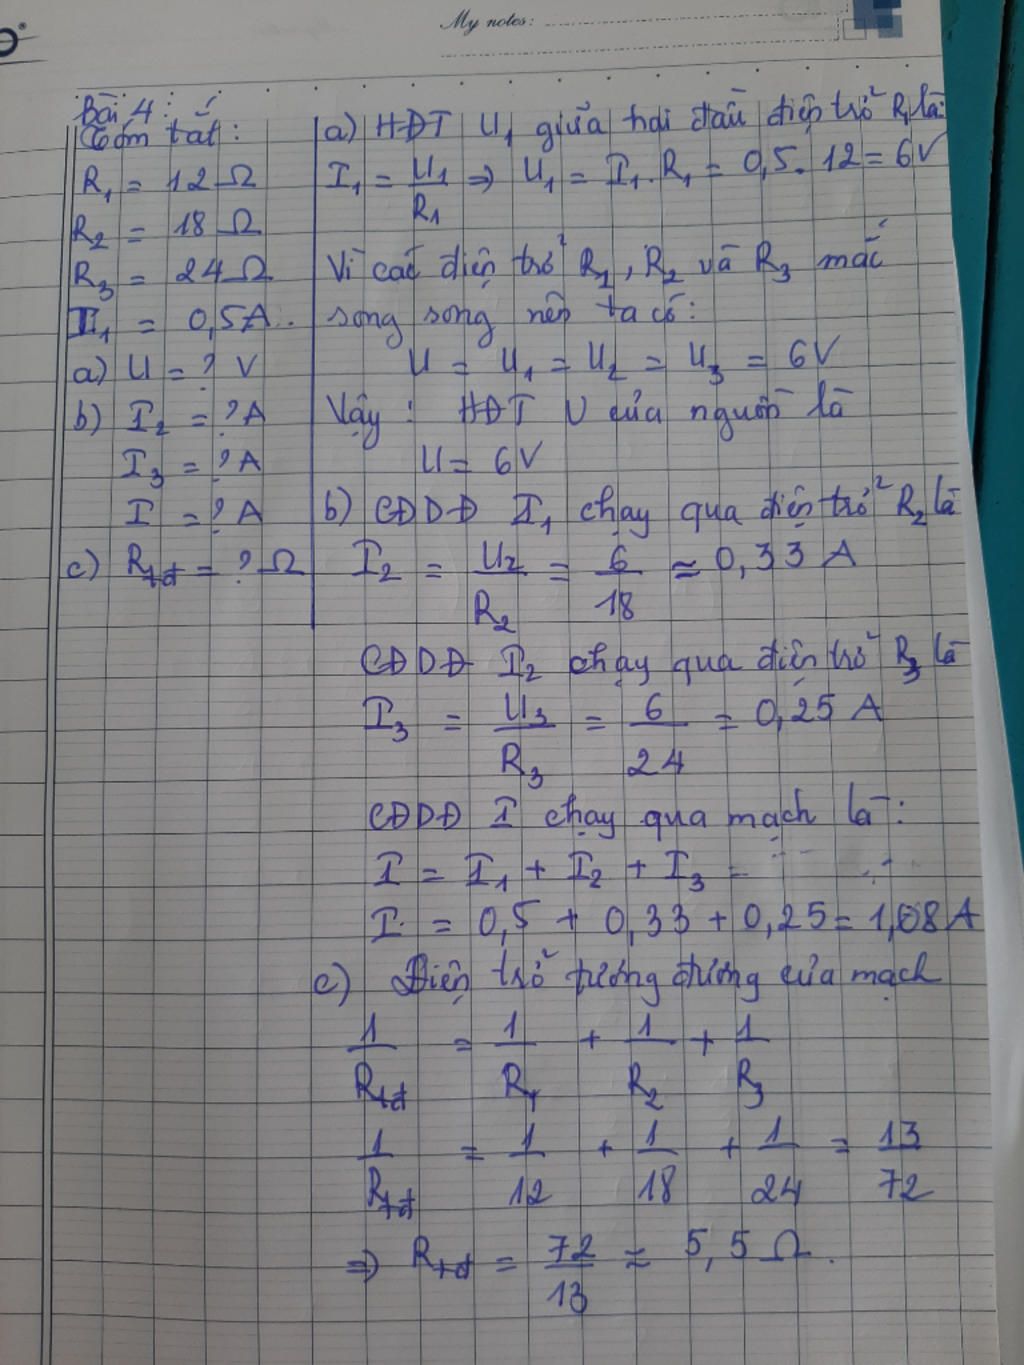 My notes:
Bài 4:
Tóm tắt:
R₁ = 12 Ω
R₂ = 18 Ω
R₃ = 24 Ω
I₁ = 0,5A.
a) U = ? V
b) I₂ = ? A
I₃ = ? A
I = ? A
c) Rtđ = ? Ω
a) HĐT U₁ giữa hai đầu điện trở R₁ là:
I₁ = U₁/R₁ => U₁ = I₁. R₁ = 0,5. 12 = 6V
Vì các điện trở R₁, R₂ và R₃ mắc
song song nên ta có:
U = U₁ = U₂ = U₃ = 6V
Vậy: HĐT U của nguồn là
U = 6V
b) CĐDĐ I₁ chạy qua điện trở R₂ là
I₂ = U₂/R₂ = 6/18 ≈ 0,33 A
CĐDĐ I₂ chạy qua điện trở R₃ là
I₃ = U₃/R₃ = 6/24 = 0,25 A
CĐDĐ I chạy qua mạch là:
I = I₁ + I₂ + I₃
I = 0,5 + 0,33 + 0,25 = 1,08 A
c) Điện trở tương đương của mạch
1/Rtđ = 1/R₁ + 1/R₂ + 1/R₃
1/Rtđ = 1/12 + 1/18 + 1/24 = 13/72
=> Rtđ = 72/13 ≈ 5,5 Ω.